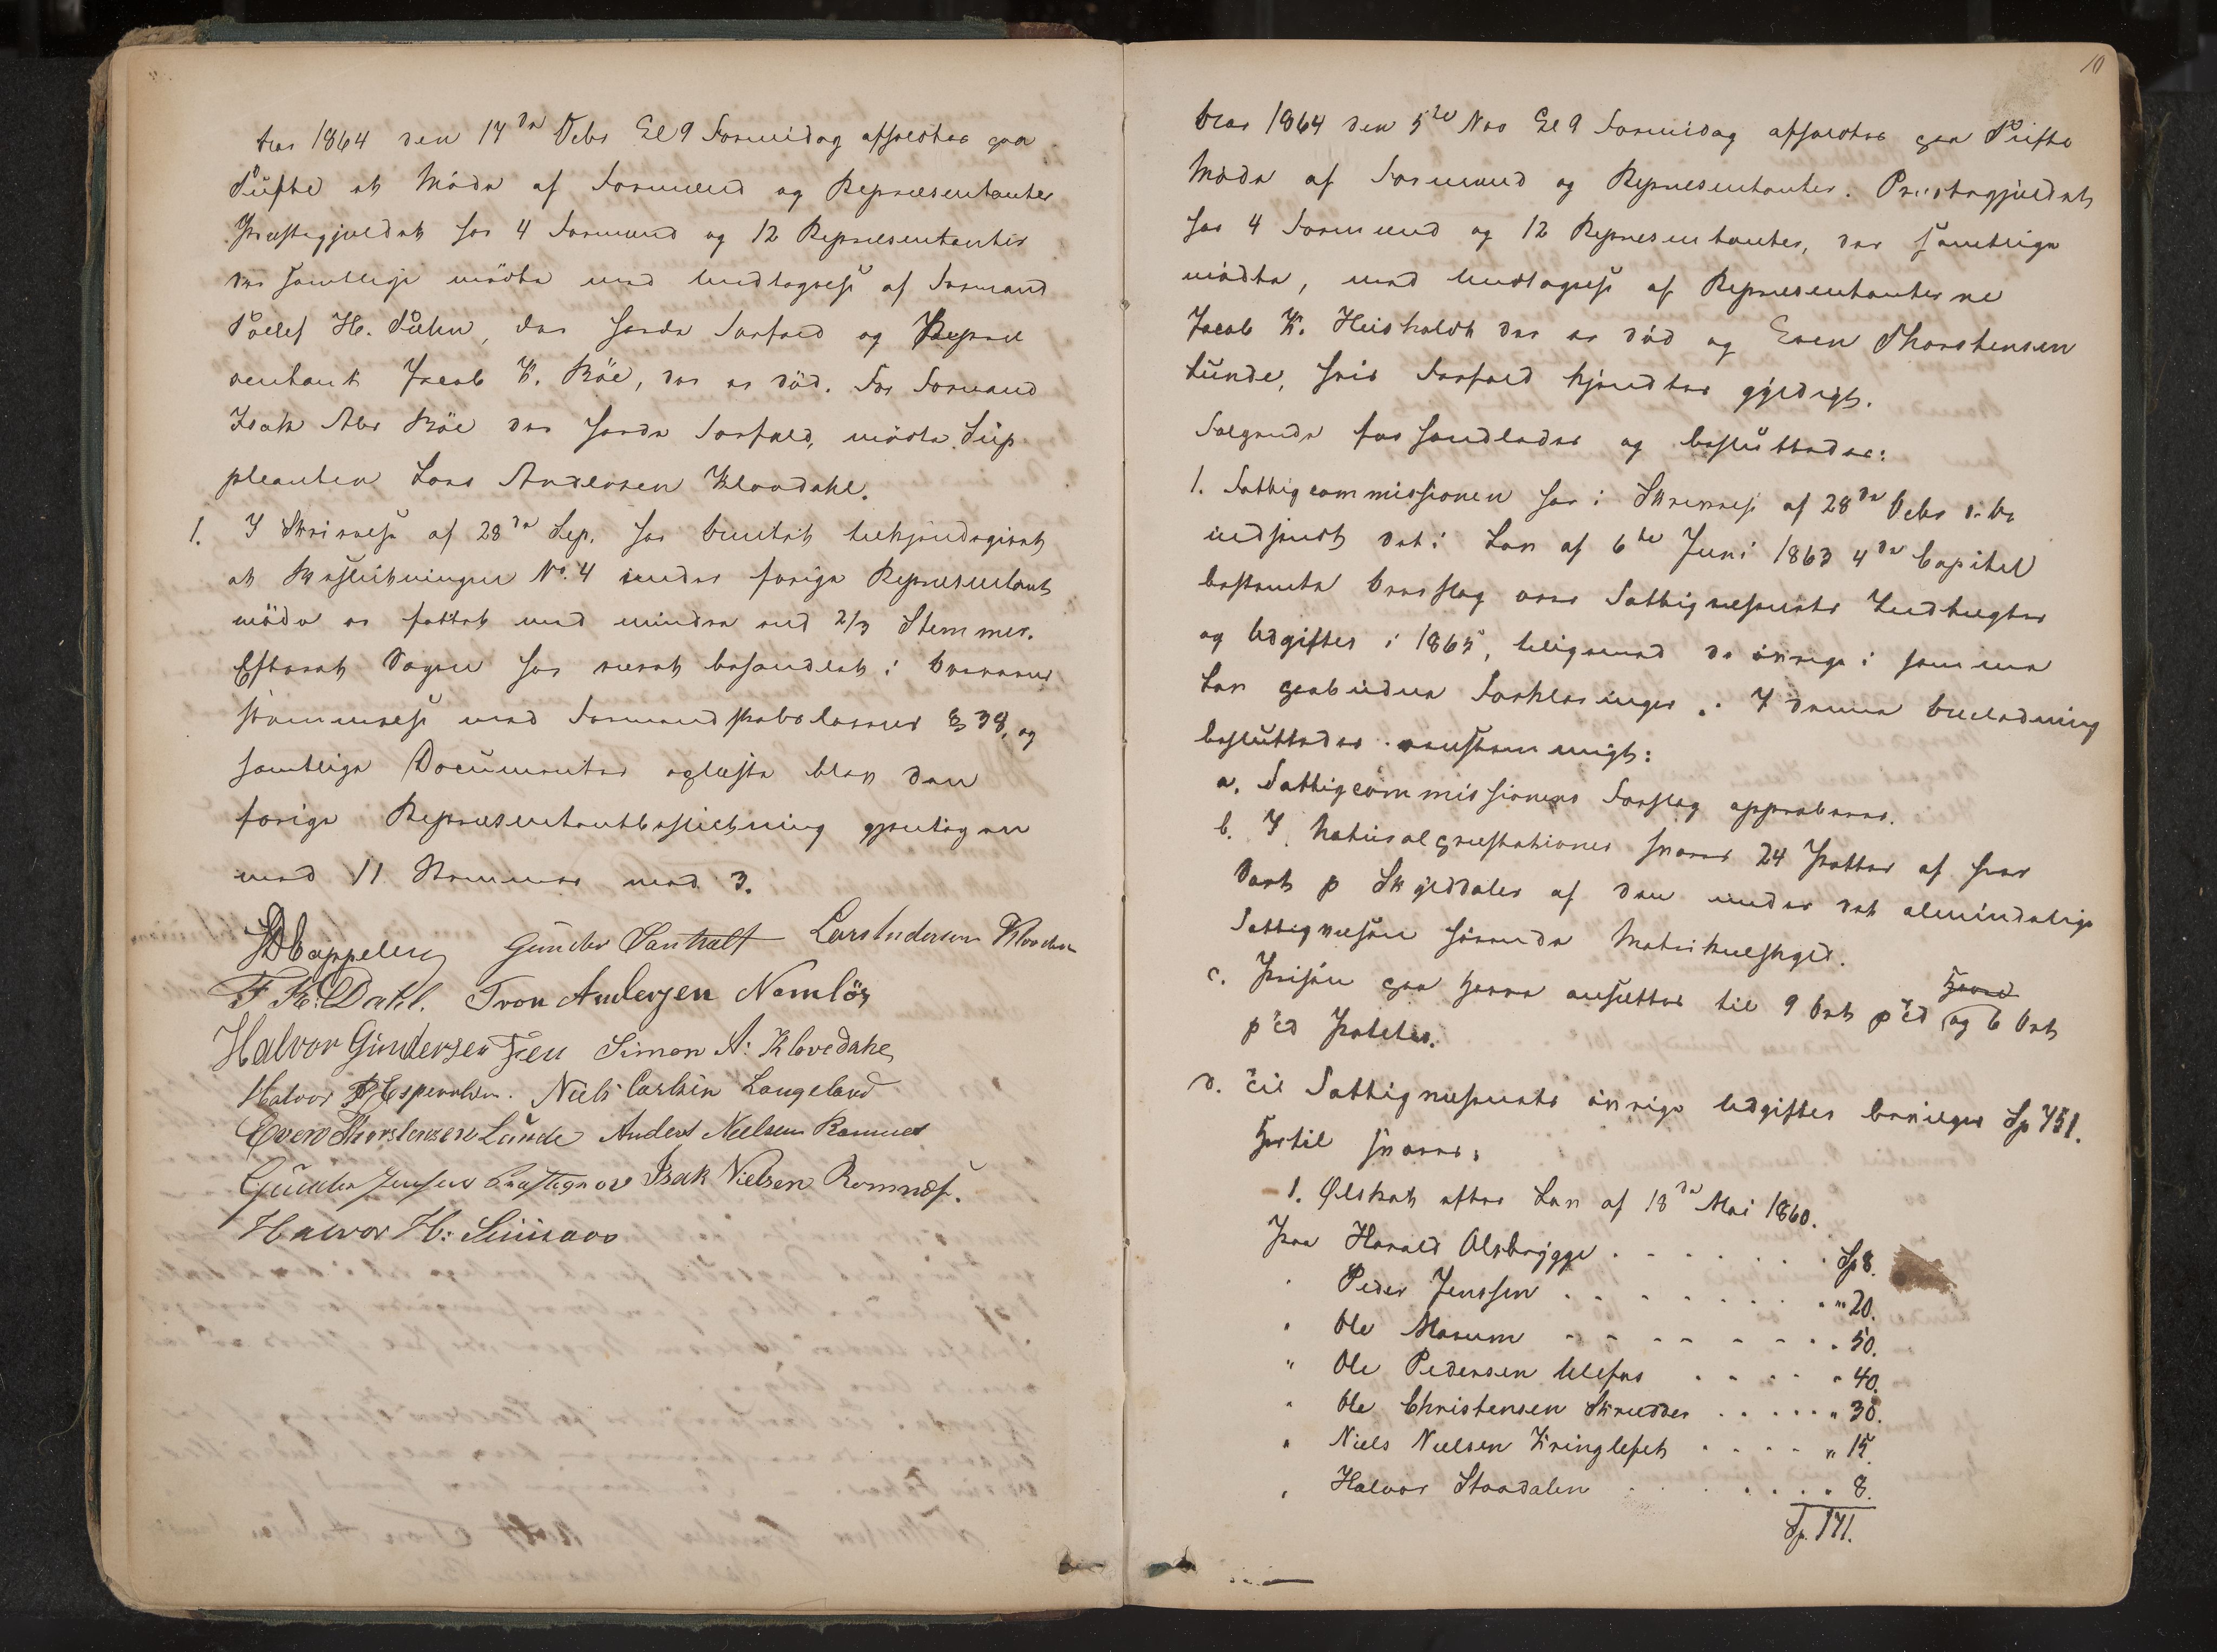 Aar 1864 den 14de Octbr Kl 9 Formidag afholdtes paa
Tufte et Möde af Formænd og Repræsentanter
Præstegjeldet har 4 Formænd og 12 Repræsentanter
der samtlige mödte med Undtagelse af Formand
H. der havde Forfald og Repræ
sentant Jacob K. Böe, der er död. For Formand
Isak Abr Böe der havde Forfald, mödte Sup
pleanten Lars Andersen Klovdahl.
1. I Skrivelse af 28de Sep. har Amtet tilkjendegivet
at Beslutningen No. 4 under forige Repræsentant
möde er fattet med mindre end 2/3 Stemmer.
Efterat Sagen har været behandlet i Overens
stemmelse med Formandskabslovens § 38, og
samtlige Documenter oplæste blev den
forige Repræsentantbeslutning gjentagen
med 11 Stemmer mod 3.
Cappelen Gunder Landhalt Lars Anderson Klovdal
F. K. Dahl. Tron Andersen Namlös
Halvor Gundersen Fen Simon A: Klovedahl
Halvor Espevalen. Niels Carlsen Langeland
Even Thorstensen Lunde Anders Nielsen Romnes
Gunder Jensen Isak Nielsen Romnæs.
Halvor H:
10
Aar 1864 den 5te Nov Kl 9 Formidag afholdtes paa Tufte
Möde af Formænd og Repræsentanter. Præstegjeldet
har 4 Formænd og 12 Repræsentanter, der samtlige
mödte, med Undtagelse af Repræsentanterne
Jacob K. Heisholdt der er död og Even Thorstensen
Lunde, hvis Forfald kjendtes gyldigt.
Fölgende forhandledes og besluttedes:
1. Fattigcommissionen har i Skrivelse af 28de Octbr d. A.
indsendt det i Lov af 6te Juni 1863 4de Capitel
bestemte Overslag over Fattigvæsenets Indtægter
og Udgifter i 1865, tilligemed de övrige i samme
Lov paabudne Forklaringer. I denne Anledning
besluttedes eenstemmigt:
a. Fattigcommissionens Forslag approberes.
b. I Naturalpræstationer svares 24 Potter af hver
Sort p Skylddaler af den under det almindelige
Fattigvæsen hörende Matrikulskyld.
c. Prisen paa Havre ansættes til 9 Ort p Td og 6 Ort
p Td Poteter.
d. Til Fattigvæsenets övrige Udgifter bevilges Sp 751.
Hertil svares:
1. Ölskat efter Lov af 18de Mai 1860.
Fra Harald Olsbrygge . . . . . . . Sp 8.
" Peder Jenssen . . . . . . . . " 20.
" Ole Marum - - - - - - - - " 50.
" Ole Pedersen Ulefos . . . . . " 40.
" Ole Christensen Skrudder . . . . . " 30.
" Niels Nielsen Kringlefet . . . . " 15.
" Halvor Staadalen . . . . . . " 8.
Sp. 171.